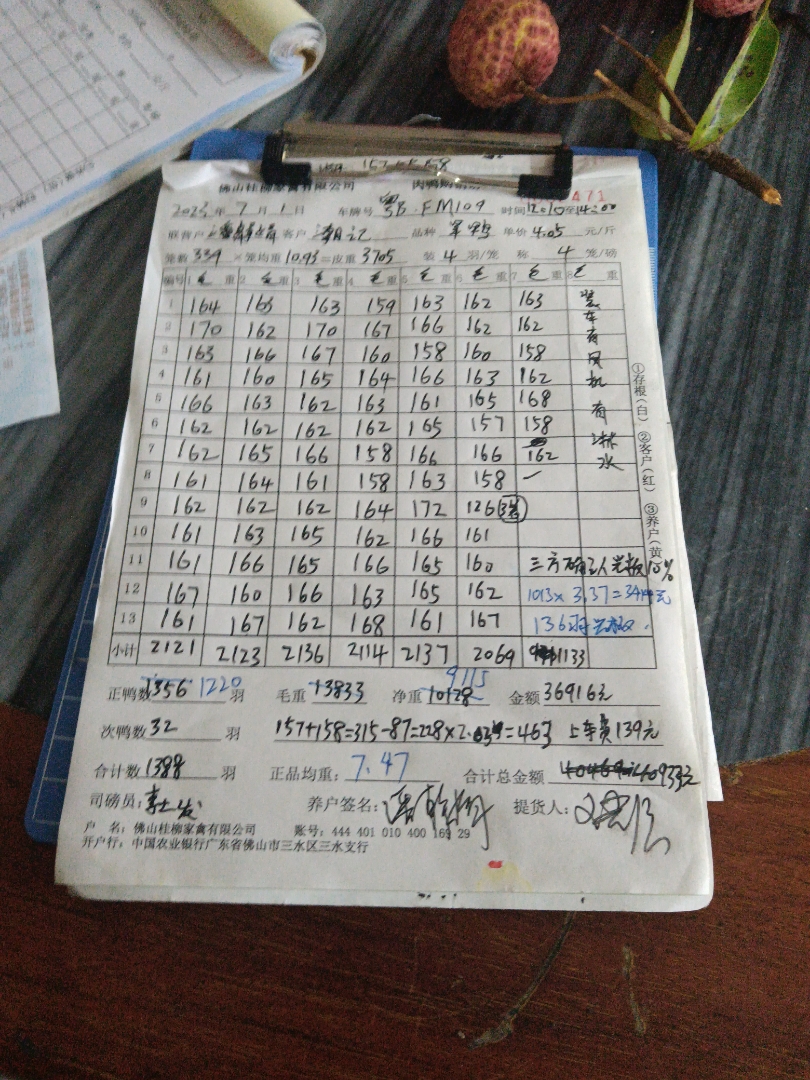 157+158
佛山桂柳家禽有限公司 肉鸭
471
2023年 7 月 1 日 车牌号 粤B.FM109 时间12:10至14:00
联营户 客户 潮记 品种 单价 4.05 元/斤
笼数 339 ×笼均重 10.93 =皮重 3705 装 4 羽/笼 称 4 笼/磅
编号 1 毛 重 2 毛 重 3 毛 重 4 毛 重 5 毛 重 6 毛 重 7 毛 重 8 毛 重
1 164 163 163 159 163 162 163
2 170 162 170 167 166 162 162
3 163 166 167 160 158 160 158
4 161 160 165 164 166 163 162
5 166 163 162 163 161 165 168
6 162 162 162 162 165 157 158
7 162 165 166 158 166 166 162
8 161 164 161 158 163 158
9 162 162 162 164 172 126 3笼
10 161 163 165 162 166 161
11 161 166 165 166 165 160 三方确认 10%
12 167 160 166 163 165 162 1013×3.37=3414元
13 161 167 162 168 161 167 136羽
小计 2121 2123 2136 2114 2137 2069 1133
装车有风机 有淋水
①存根(白) ②客户(红) ③养户(黄)
正鸭数 1356 1220 羽 毛重 13833 净重 10128 9115 金额 36916元
次鸭数 32 羽 157+158=315-87=228×2.03=463 上车费139元
合计数 1388 羽 正品均重: 7.47 合计总金额 40933元
司磅员: 养户签名: 提货人:
户 名: 佛山桂柳家禽有限公司 账号: 444 401 010 400 169 29
开户行: 中国农业银行广东省佛山市三水区三水支行